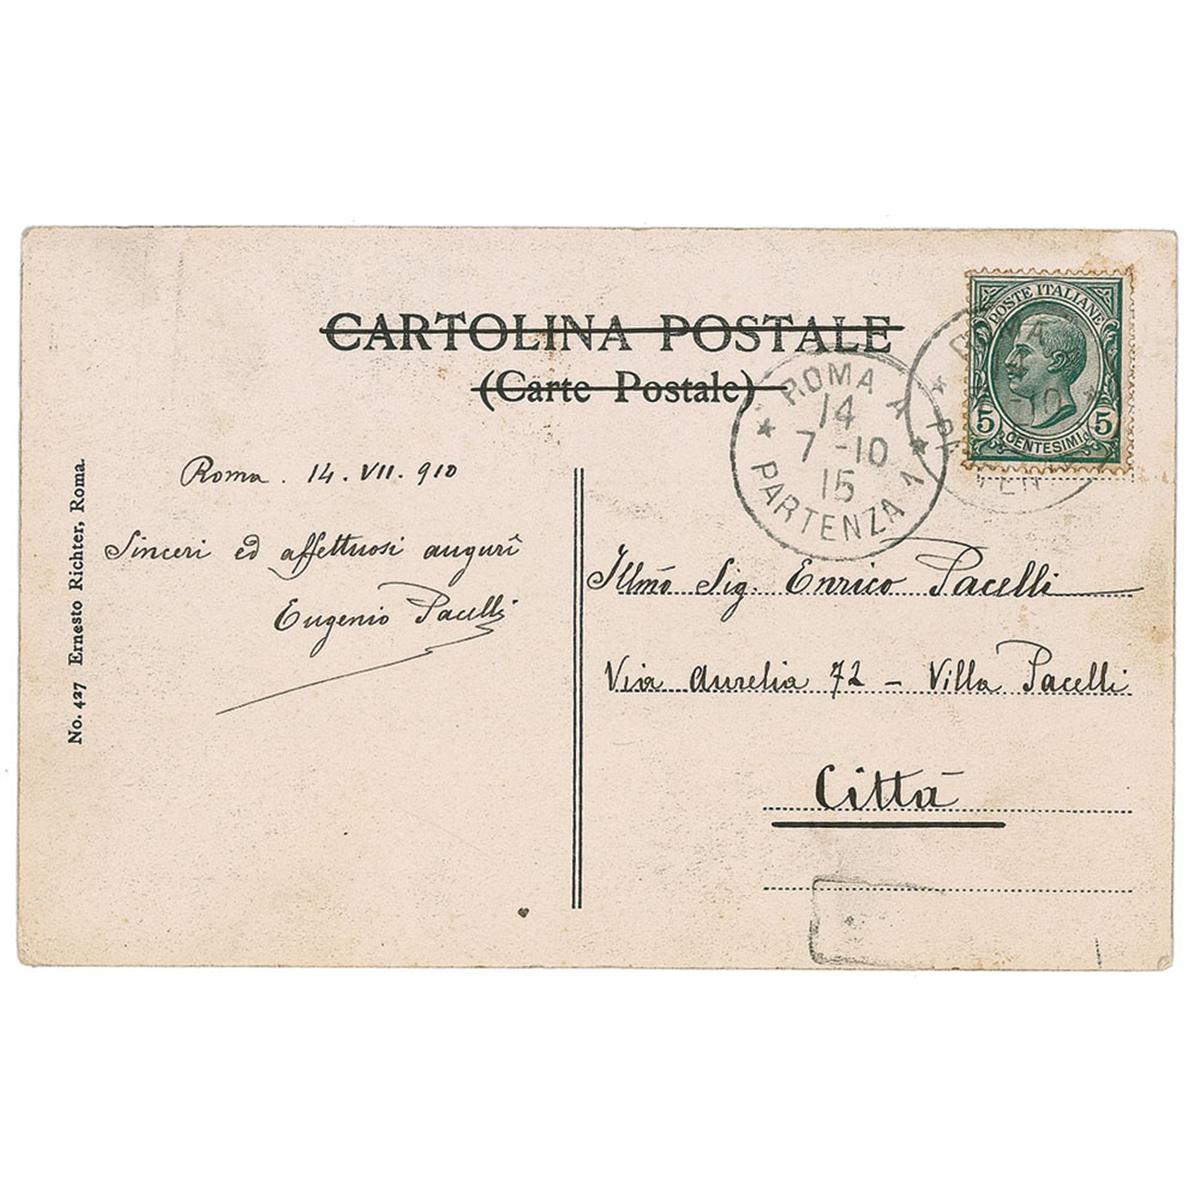 CARTOLINA POSTALE
(Carte Postale)
POSTE ITALIANE
5 CENTESIMI 5
ROMA A
14
7-10
15
PARTENZA 1
No. 427 Ernesto Richter, Roma.
Roma. 14. VII. 910
Sinceri ed affettuosi augurî
Eugenio Pacelli
Illmo Sig. Enrico Pacelli
Via Aurelia 72 - Villa Pacelli
Città